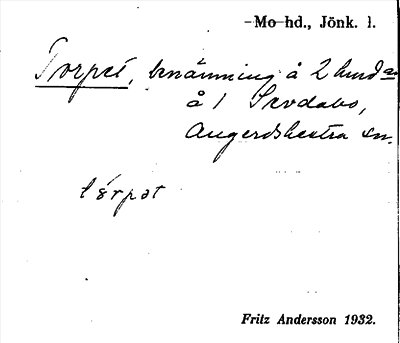 -Mo hd., Jönk. l.
Torpet, benämning å 2 hem
å 1 Sevdabo,
Angerdshestra sn.
tórpat
Fritz Andersson 1932.